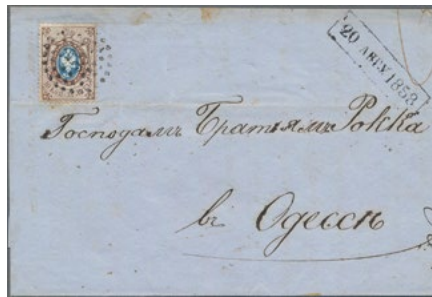 20 АВГУ 1858
Господамъ Братьямъ Рокка
въ Одессѣ